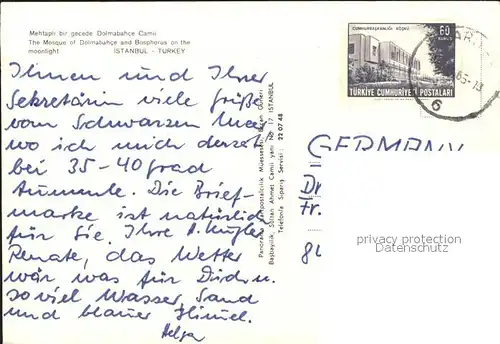 Mehtaplı bir gecede Dolmabahçe Camii
The Mosque of Dolmabahçe and Bosphorus on the
moonlight İSTANBUL - TURKEY
Ihnen und Ihrer
Sekretärin viele Grüße
vom Schwarzen Meer
wo ich mich derzeit
bei 35-40 grad
tummle. Die Brief-
marke ist natürlich
für Sie. Ihre
Renate, das Wetter
wär was für Dich u.
so viel Wasser, Sand
und blauer Himmel.
Helga
Panorama Kartpostalcilik Müessesesi
Başbayilik: Sultan Ahmet Camii yanı No 17 İSTANBUL
Telefonla Sipariş Servisi: 22 07 48
CUMHURBAŞKANLIĞI KÖŞKÜ
60
KURUŞ
TÜRKİYE CUMHURİYETİ POSTALARI
65-13
6
GERMANY
Dr
Fr.
8
privacy protection
Datenschutz